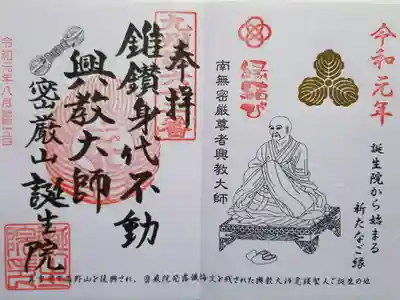 令和元年
誕生院から始まる
新たなご縁
縁結び
南無密厳尊者興教大師
奉拝
錐鑽身代不動
興教大師
密厳山 誕生院
令和元年八月
高野山を復興され、密厳院発露懺悔文を残された興教大師覚鑁聖人ご誕生の地